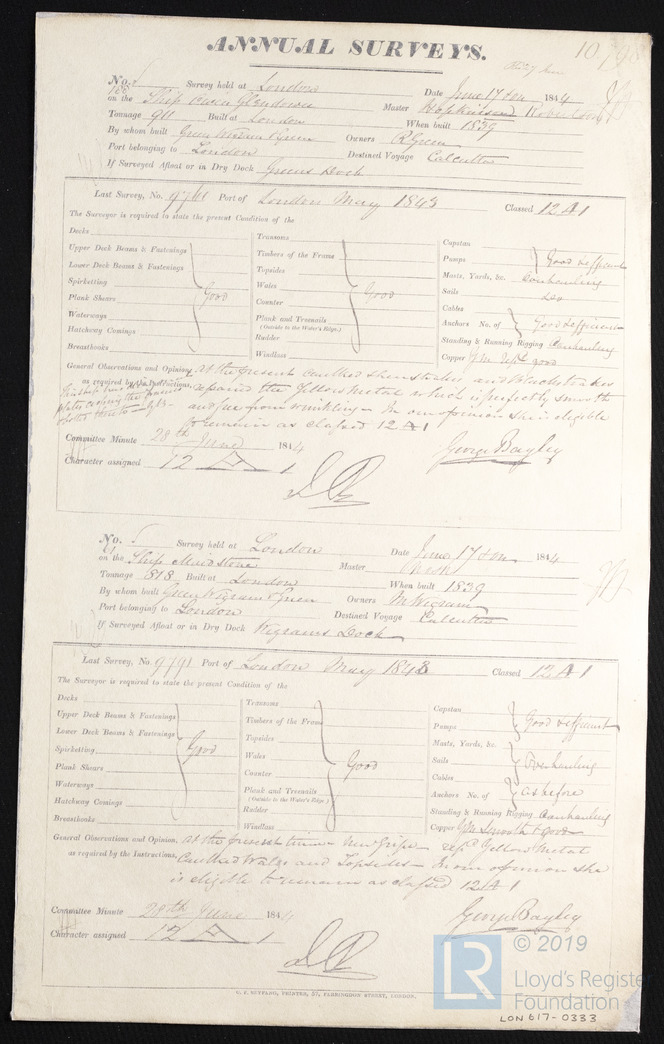 ANNUAL SURVEYS.
No. Survey held at London Date June 17 1844
on the Ship Owen Glendower Master Hopkinson Robertson
Tonnage 911 Built at London When built 1839
By whom built Green Wigram & Green Owners R Green
Port belonging to London Destined Voyage Calcutta
If Surveyed Afloat or in Dry Dock Greens Dock
Last Survey, No. 9761 Port of London May 1843 Classed 12 A 1
The Surveyor is required to state the present Condition of the
Decks
Upper Deck Beams & Fastenings
Lower Deck Beams & Fastenings
Spirketting
Plank Shears
Waterways
Hatchway Comings
Breasthooks
Good
Transoms
Timbers of the Frame
Topsides
Wales
Counter
Plank and Treenails
(Outside to the Water's Edge.)
Rudder
Windlass
Good
Capstan
Pumps Good & efficient
Masts, Yards, &c. Overhauling
Sails
Cables
Anchors No. of Good & efficient
Standing & Running Rigging Overhauling
Copper YM repd good
General Observations and Opinion, At the present caulked sheerstrakes, and blackstrakes
as required by the Instructions, repaired the Yellow Metal which is perfectly smooth
and free from wrinkling - In our opinion she is eligible
to remain as classed 12 A 1
Committee Minute 28th June 1844
George Bayley
Character assigned 12 A 1
No. 61 Survey held at London Date June 17 1844
on the Ship Maidstone Master
Tonnage 818 Built at London When built 1839
By whom built Green Wigram & Green Owners M Wigram
Port belonging to London Destined Voyage Calcutta
If Surveyed Afloat or in Dry Dock Wigrams Dock
Last Survey, No. 9791 Port of London May 1843 Classed 12 A 1
The Surveyor is required to state the present Condition of the
Decks
Upper Deck Beams & Fastenings
Lower Deck Beams & Fastenings
Spirketting
Plank Shears
Waterways
Hatchway Comings
Breasthooks
Good
Transoms
Timbers of the Frame
Topsides
Wales
Counter
Plank and Treenails
(Outside to the Water's Edge.)
Rudder
Windlass
Good
Capstan
Pumps Good & efficient
Masts, Yards, &c.
Sails Overhauling
Cables
Anchors No. of as before
Standing & Running Rigging Overhauling
Copper YM smooth & good
General Observations and Opinion, At the present time New Gripe repd Yellow Metal
as required by the Instructions, Caulked Wales and Topsides - In our opinion she
is eligible to remain as classed 12 A 1
Committee Minute 28th June 1844
George Bayley
Character assigned 12 A 1
© 2019
LR Lloyd's Register
Foundation
LON 617-0333